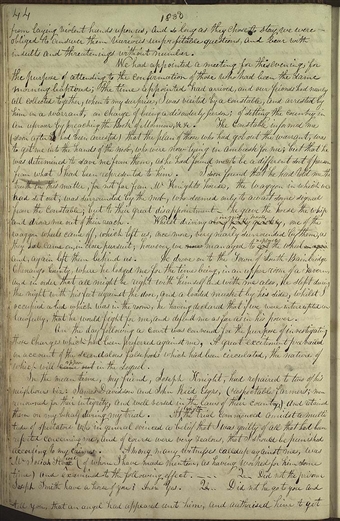 44
1830
from laying violent hands upon us, and so long as they chose to stay, we were
obliged to endure them diverse unprofitable questions, and bear with
insults and threatenings without number.
We had appointed a meeting for this evening, for
the purpose of attending to the confirmation of those who had been the same
morning baptized; the time appointed had arrived, and our friends had nearly
all collected together, when to my surprise, I was visited by a constable, and arrested by
him on a warrant, on charge of being a disorderly person; of setting the country in
an uproar by preaching the Book of Mormon, &c. &c. The Constable informed me
soon after I had been arrested, that the plan of those who had got out the warrant, was
to get me into the hands of the mob, who were now lying in ambush for me; but that he
was determined to save me from them, as he had found me to be a different sort of person
from what I had been represented to him. I soon found that he had told me the
truth in this matter, for not far from Mr Knight's house, the waggon in which we
had set out, was surrounded by the mob, who seemed only to await some signal
from the constable; but to their great disappointment, he gave the horse the whip
and drove me out of their reach. Whilst driving along pretty quickly, one of the
waggon wheels came off, which left us, once more, very nearly surrounded by them, as
they had come on, in close pursuit; however, we managed to get the wheel on again
and, again left them behind us. He drove on to the Town of South Bainbridge
Chenango County, where he lodged me for the time being, in an upper room of a Tavern,
and in order that all might be right with himself and with me also, he slept during
the night with his feet against the door, and a loaded musket by his side, whilst I
occupied a bed which was in the room, he having declared that if we were interrupted un-
lawfully, that he would fight for me, and defend me as far as in his power.
On the day following a Court was convened for the purpose of investigating
those charges which had been preferred against me. A great excitement prevailed
on account of the scandalous falsehoods which had been circulated, the nature of
which will appear in the sequel.
In the mean time, my friend, Joseph Knight, had repaired to two of his
neighbours viz: James Davidson and John Reid Esqrs, (respectable farmers, men
renowned for their integrity, and well versed in the laws of their country,) and retained
them on my behalf during my trial. At length the trial commenced amidst a multi-
tude of spectators who in general evinced a belief that I was guilty of all that had been
reported concerning me, and of course were very zealous, that I should be punished
according to my crimes. Among many witnesses called up against me, was
Mr Josiah Stoal (of whom I have made mention, as having worked for him some
time) and examined to the following effect. Q— Did not the prisoner
Joseph Smith have a horse of you? Ansr Yes. Q— Did not he go to you and
tell you, that an angel had appeared unto him, and authorised him to get